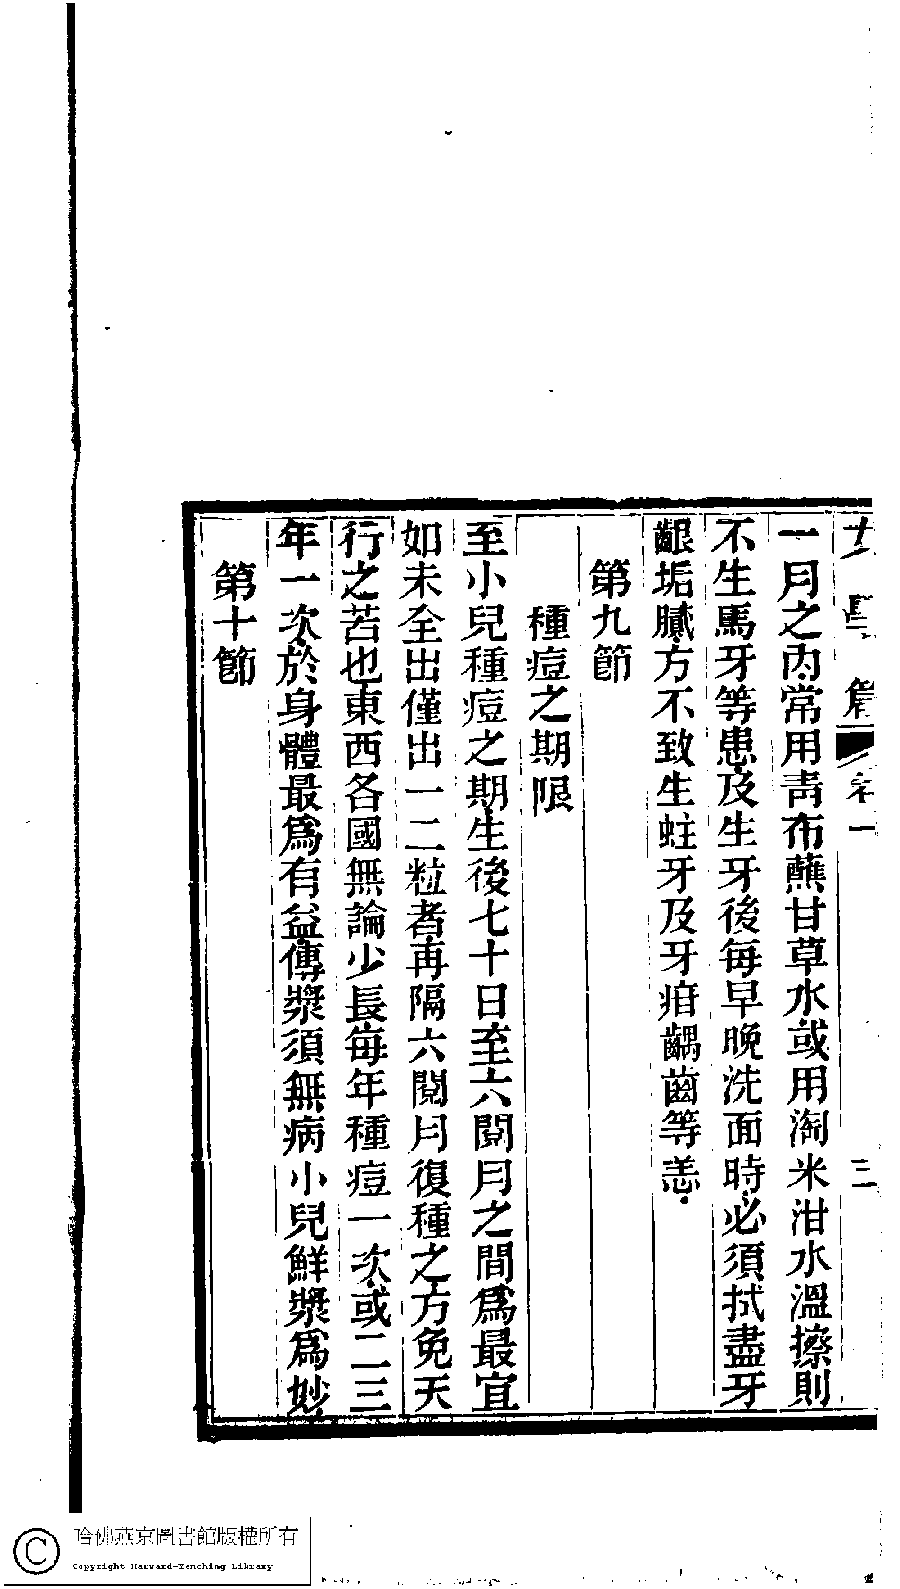 卷一
三
一月之內常用青布蘸甘草水或用淘米泔水溫擦則
不生馬牙等患及生牙後每早晚洗面時必須拭盡牙
齦垢膩方不致生蛀牙及牙疳齲齒等恙
第九節
種痘之期限
至小兒種痘之期生後七十日至六閱月之間爲最宜
如未全出僅出一二粒者再隔六閱月復種之方免天
行之苦也東西各國無論少長每年種痘一次或二三
年一次於身體最爲有益傳漿須無病小兒鮮漿爲妙
第十節
哈佛燕京圖書館版權所有
Copyright Harvard-Yenching Library